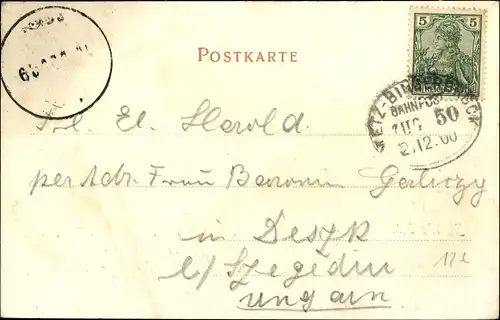 POSTKARTE
5
METZ-BINGERBRÜCK
BAHNPOST
ZUG 50
2.12.00
Frl. El. Herold.
per Adr. Frau Baronin Gerliczy
in Deszk
b/ Szegedin
Ungarn
12e